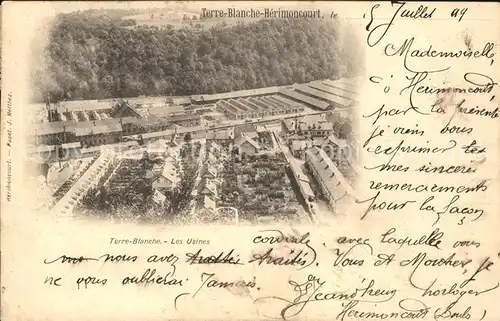 Terre-Blanche-Hérimoncourt, le 5 Juillet 99
Mademoiselle,
à Hérimoncourt
par la présente
je viens vous
exprimer les
mes sincères
remerciements
pour la façon
cordiale, avec laquelle vous
nous avez traités traités. Vous et
ne vous oublierai Jamais.
horloger
Hérimoncourt (Doubs)
Terre-Blanche. - Les Usines
Hérimoncourt. - Papet. J. Mettez.